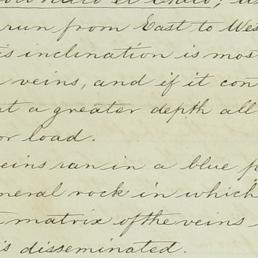 run from East to Wes
is inclination is mos
veins, and if it con
at a greater depth all
or load.
eins ran in a blue p
neral rock in which
matrix of the veins
is disseminated.